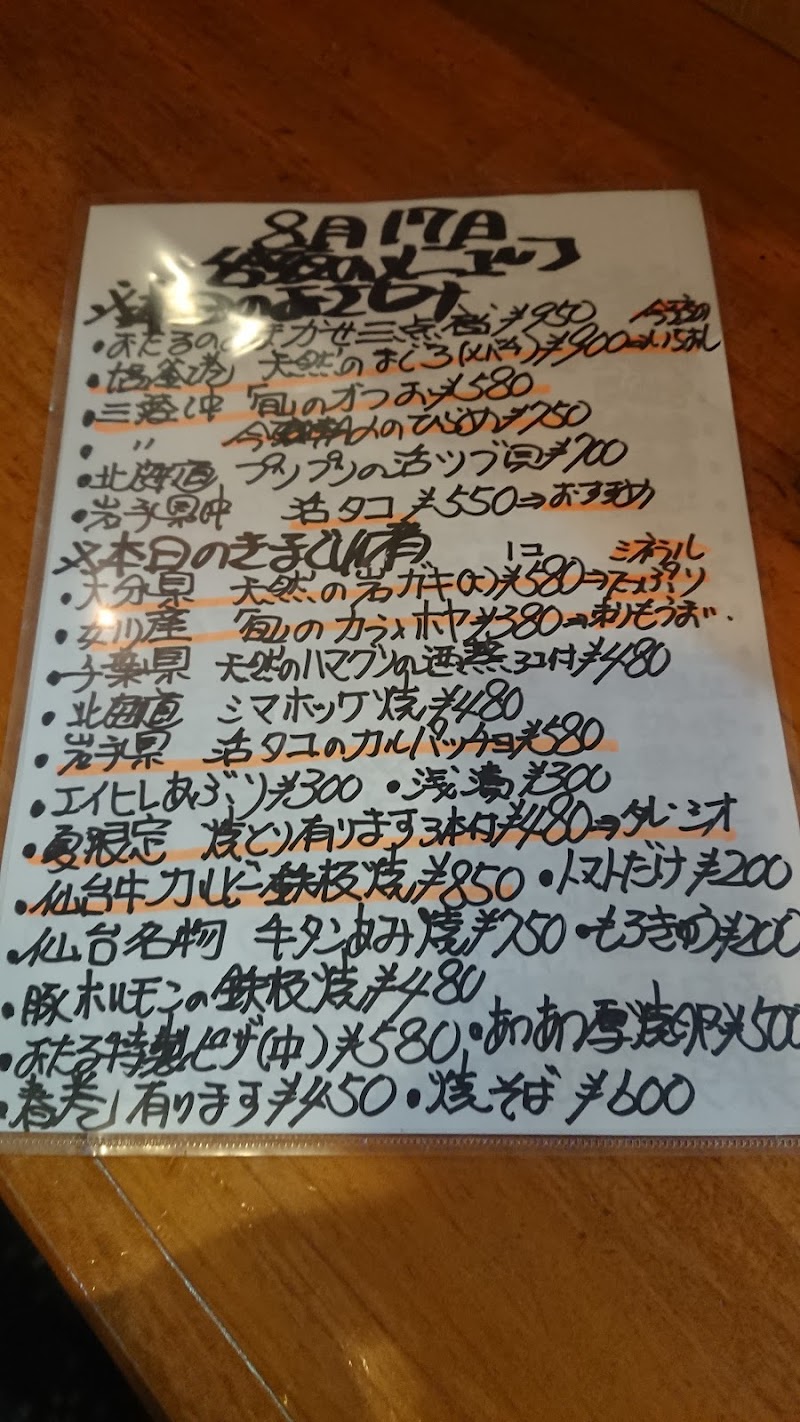 8月17日
今夜のメニュー
※本日のおつくり
・おたるのおまかせ三点盛¥950 今夜の
・塩釜港 天然のまぐろ(メバチ)¥900⇒いちおし
・三陸沖 旬のかつお¥580
・〃 のひらめ¥750
・北海道 プリプリの活ツブ貝¥700
・岩手県沖 活タコ¥550⇒おすすめ
※本日のきまぐれ肴 1コ ミネラル
・大分県 天然の岩ガキ(大)¥580⇒たっぷり
・女川産 旬のカラ付ホヤ¥380⇒
・千葉県 天然のハマグリの酒蒸 3コ付¥480
・北海道 シマホッケ焼¥480
・岩手県 活タコのカルパッチョ¥580
・エイヒレあぶり¥300 ・浅漬¥300
・夏限定 焼とり有ります3本付¥480⇒タレ・シオ
・仙台牛カルビー鉄板焼¥850 ・トマトだけ¥200
・仙台名物 牛タンあみ焼¥750 ・もろきゅう¥200
・豚ホルモンの鉄板焼¥480
・おたる特製ピザ(中)¥580 ・あつあつ厚焼卵¥500
・春巻有ります¥450 ・焼そば¥600